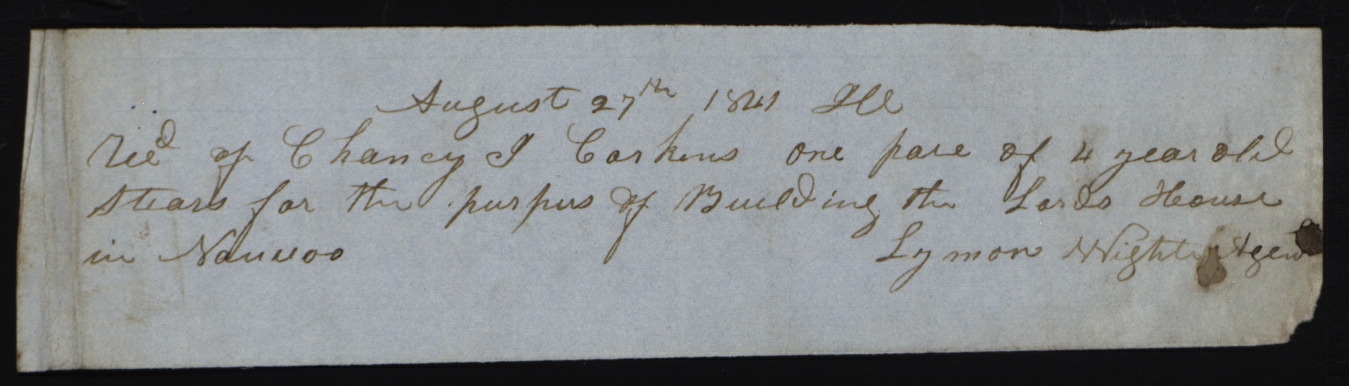 August 27th 1841 Ill
Recd of Chancy I Carkins one pare of 4 year old
stears for the purpus of Building the Lords House
in Nauvoo Lymon Wight Agent